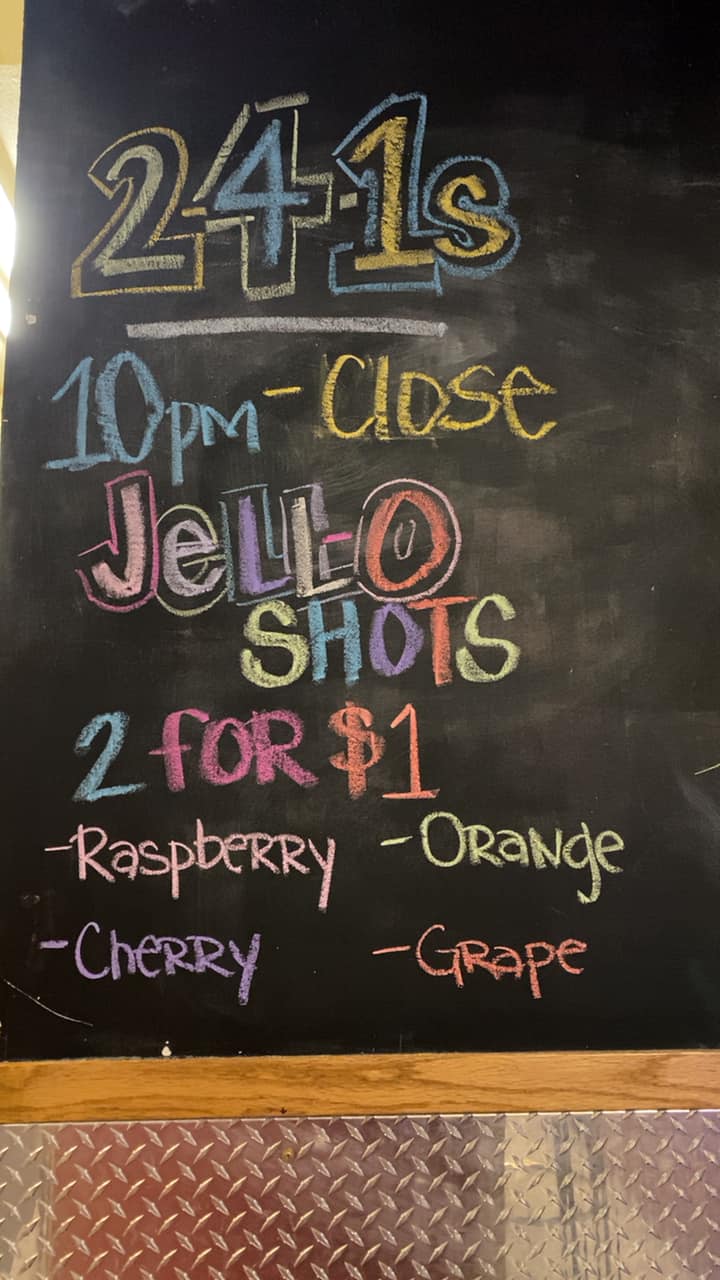 2-4-1s
10pm - Close
JeLL-O
SHOTS
2 FOR $1
-Raspberry -Orange
-Cherry -Grape